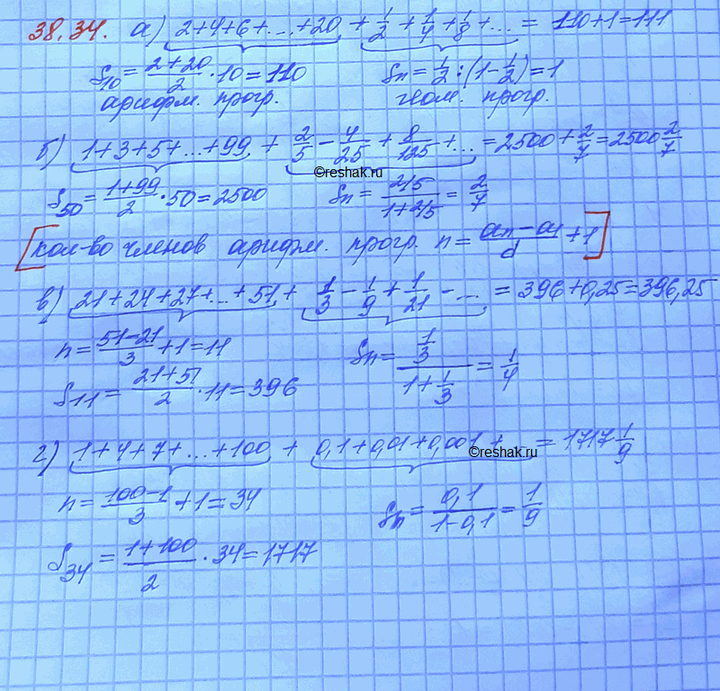 38.34. а) 2+4+6+...+20 + 1/2 + 1/4 + 1/8 + ... = 110+1=111
S10 = (2+20)/2 · 10 = 110 Sn = 1/2 : (1 - 1/2) = 1
арифм. прогр. геом. прогр.
б) 1+3+5+...+99 + 2/5 - 4/25 + 8/125 + ... = 2500 + 2/7 = 2500 2/7
©reshak.ru
S50 = (1+99)/2 · 50 = 2500 Sn = (2/5)/(1+2/5) = 2/7
[кол-во членов арифм. прогр. n = (an - a1)/d + 1]
в) 21+24+27+...+51 + 1/3 - 1/9 + 1/21 - ... = 396+0,25=396,25
n = (51-21)/3 + 1 = 11 Sn = (1/3)/(1+1/3) = 1/4
S11 = (21+51)/2 · 11 = 396
г) 1+4+7+...+100 + 0,1+0,01+0,001+... = 1717 1/9
©reshak.ru
n = (100-1)/3 + 1 = 34 Sn = 0,1/(1-0,1) = 1/9
S34 = (1+100)/2 · 34 = 1717